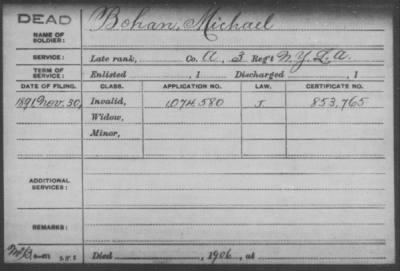 DEAD
NAME OF SOLDIER: Bohan, Michael
SERVICE: Late rank, Co. A, 3 Reg't N.Y. L. A.
TERM OF SERVICE: Enlisted , 1 Discharged , 1
DATE OF FILING. CLASS. APPLICATION NO. LAW. CERTIFICATE NO.
1891 Nov. 30, Invalid, 1074,580 J 853,765
Widow,
Minor,
ADDITIONAL SERVICES:
REMARKS:
Died , 1906, at